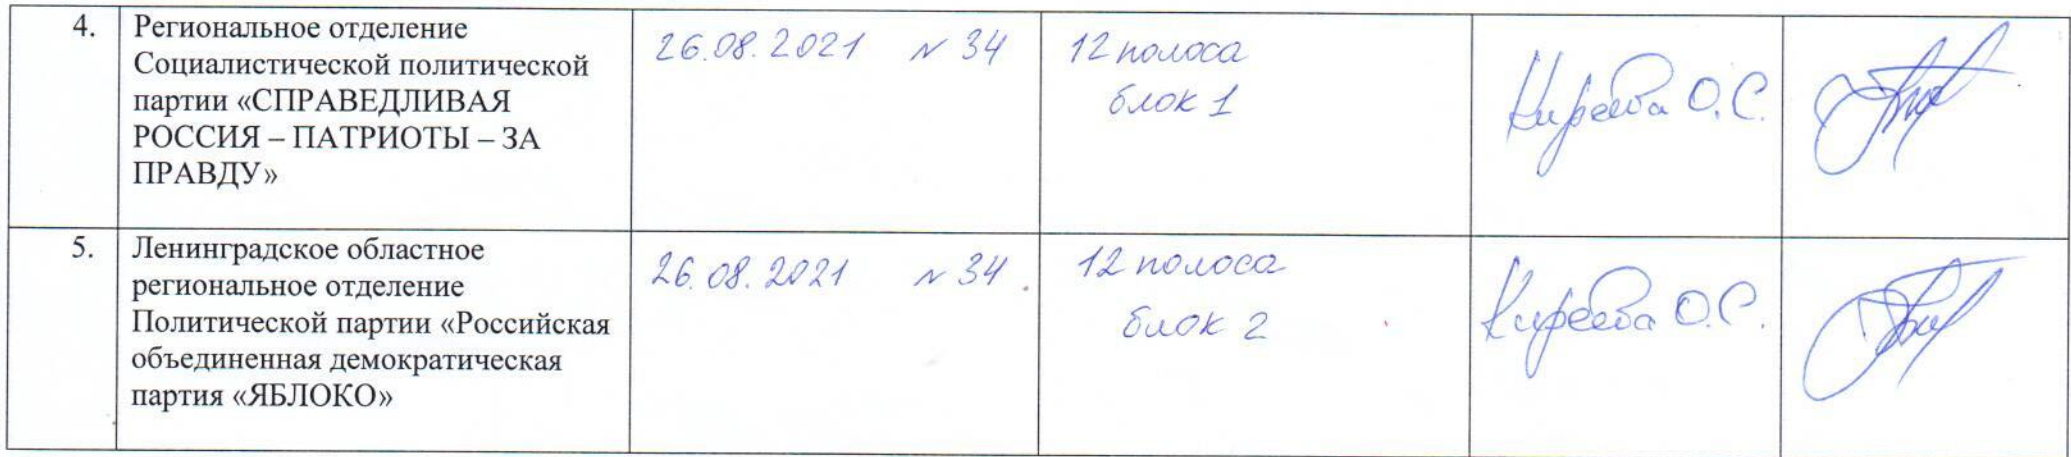 4.
Региональное отделение
Социалистической политической
партии «СПРАВЕДЛИВАЯ
РОССИЯ – ПАТРИОТЫ – ЗА
ПРАВДУ»
26.08.2021 № 34
12 полоса
блок 1
Киреева О.С.
5.
Ленинградское областное
региональное отделение
Политической партии «Российская
объединенная демократическая
партия «ЯБЛОКО»
26.08.2021 № 34
12 полоса
блок 2
Киреева О.С.